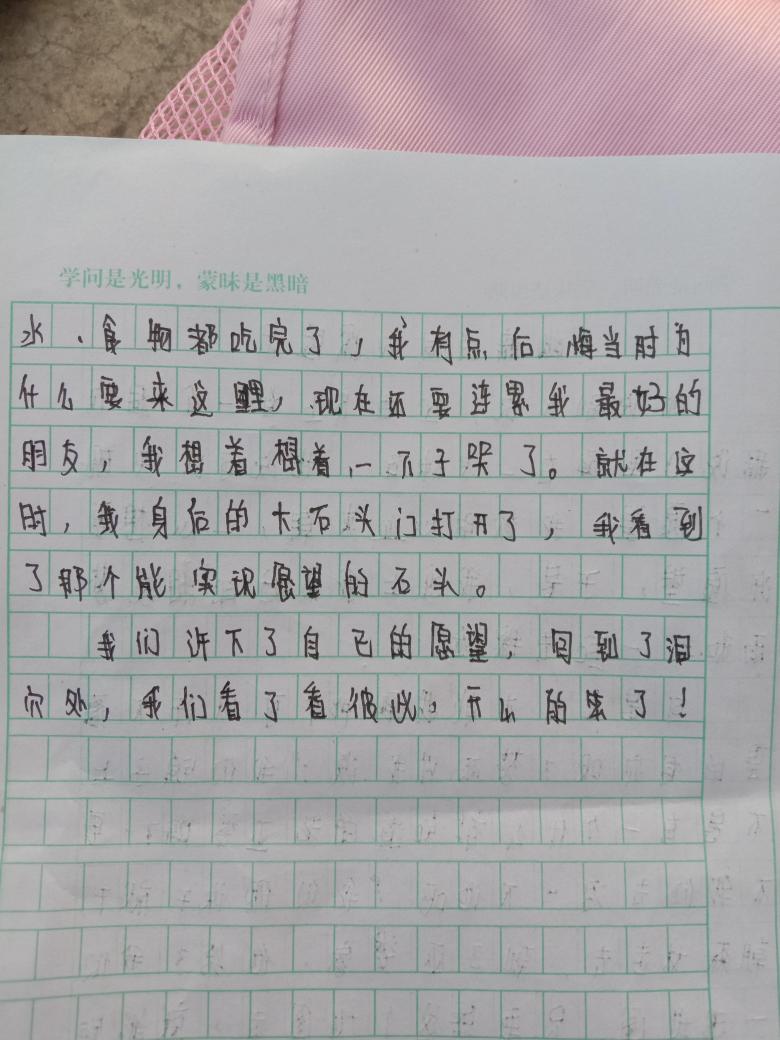 学问是光明，蒙昧是黑暗
水、食物都吃完了，我有点后悔当时为
什么要来这里，现在还要连累我最好的
朋友，我想着想着，一下子哭了。就在这
时，我身后的大石头门打开了，我看到
了那个能实现愿望的石头。
我们许下了自己的愿望，回到了洞
穴处，我们看了看彼此，开心的笑了！